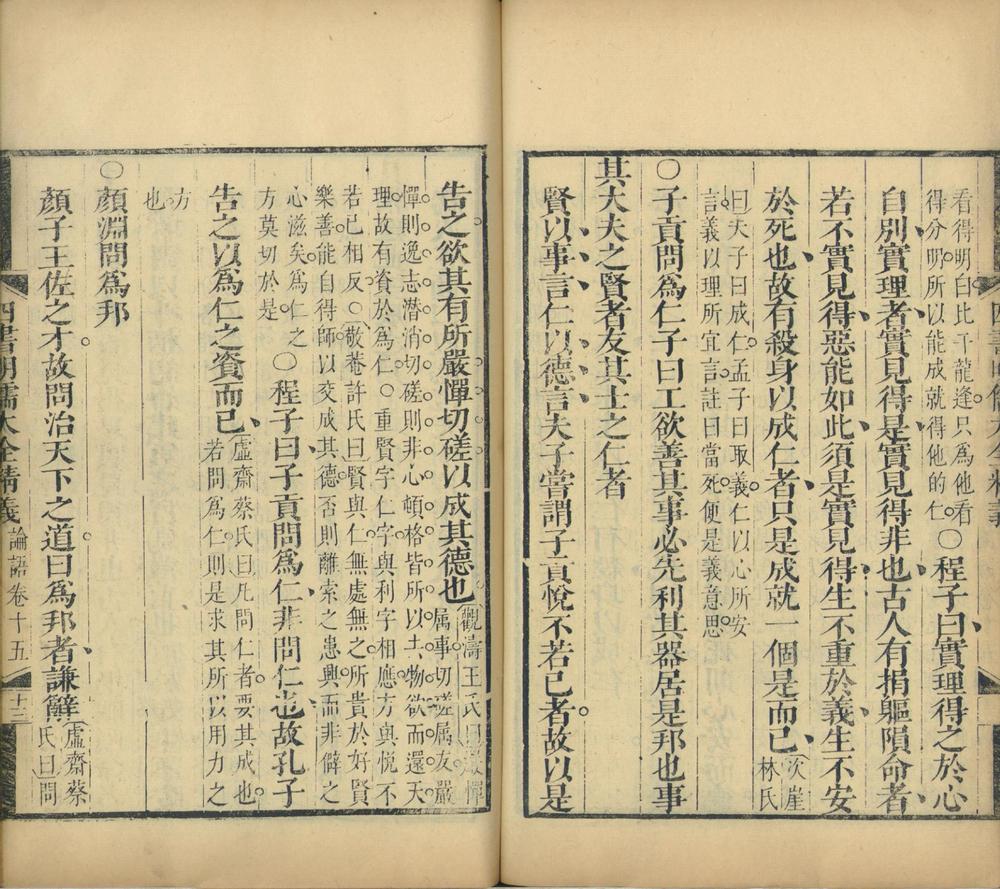 看得明白比干龍逢只為他看
得分明所以能成就得他的仁○程子曰實理得之於心
自別實理者實見得是實見得非也古人有捐軀隕命者
若不實見得惡能如此須是實見得生不重於義生不安
於死也故有殺身以成仁者只是成就一個是而已次崖林氏
曰夫子曰成仁孟子曰取義仁以心所安
言義以理所宜言註曰當死便是義意思
○子貢問爲仁子曰工欲善其事必先利其器居是邦也事
其大夫之賢者友其士之仁者
賢以事言仁以德言夫子嘗謂子貢悅不若己者故以是
告之欲其有所嚴憚切磋以成其德也觀濤王氏曰嚴憚屬事切磋屬友嚴
憚則逸志潛消切磋則非心頓格皆所以去物欲而還天
理故有資於爲仁○重賢字仁字與利字相應方與悅不
若己相反○敬菴許氏曰賢與仁無處無之所貴於好賢
樂善能自得師以交成其德否則離索之患興而非僻之
心滋矣爲仁之
方莫切於是○程子曰子貢問爲仁非問仁也故孔子
告之以爲仁之資而已虛齋蔡氏曰凡問仁者要其成也
若問爲仁則是求其所以用力之
方
也
○顏淵問爲邦
顏子王佐之才故問治天下之道曰爲邦者謙辭虛齋蔡氏曰問
四書明儒大全精義 論語卷十五 十三